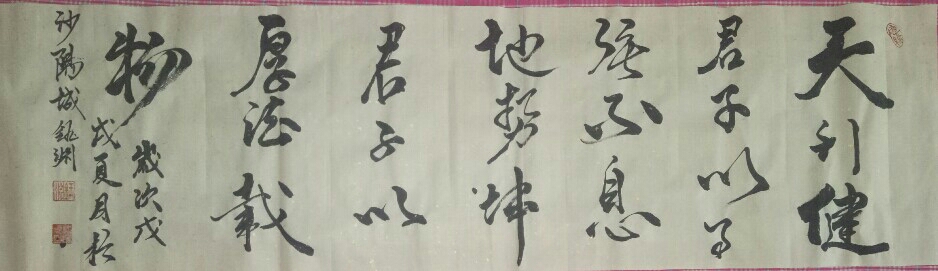 天行健
君子以自
强不息
地势坤
君子以
厚德載
物
歲次戊
戌夏月於
沙陽城